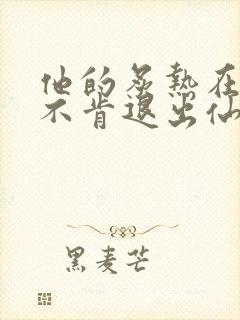 他的炙热在
不肯退出仙
黑麦芒